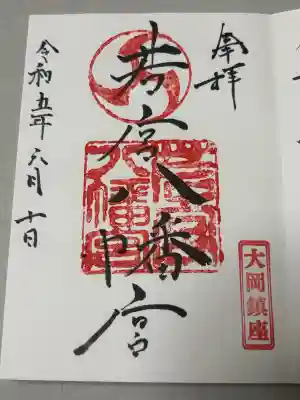 奉拝
若宮八幡宮
大岡鎮座
令和五年六月十日